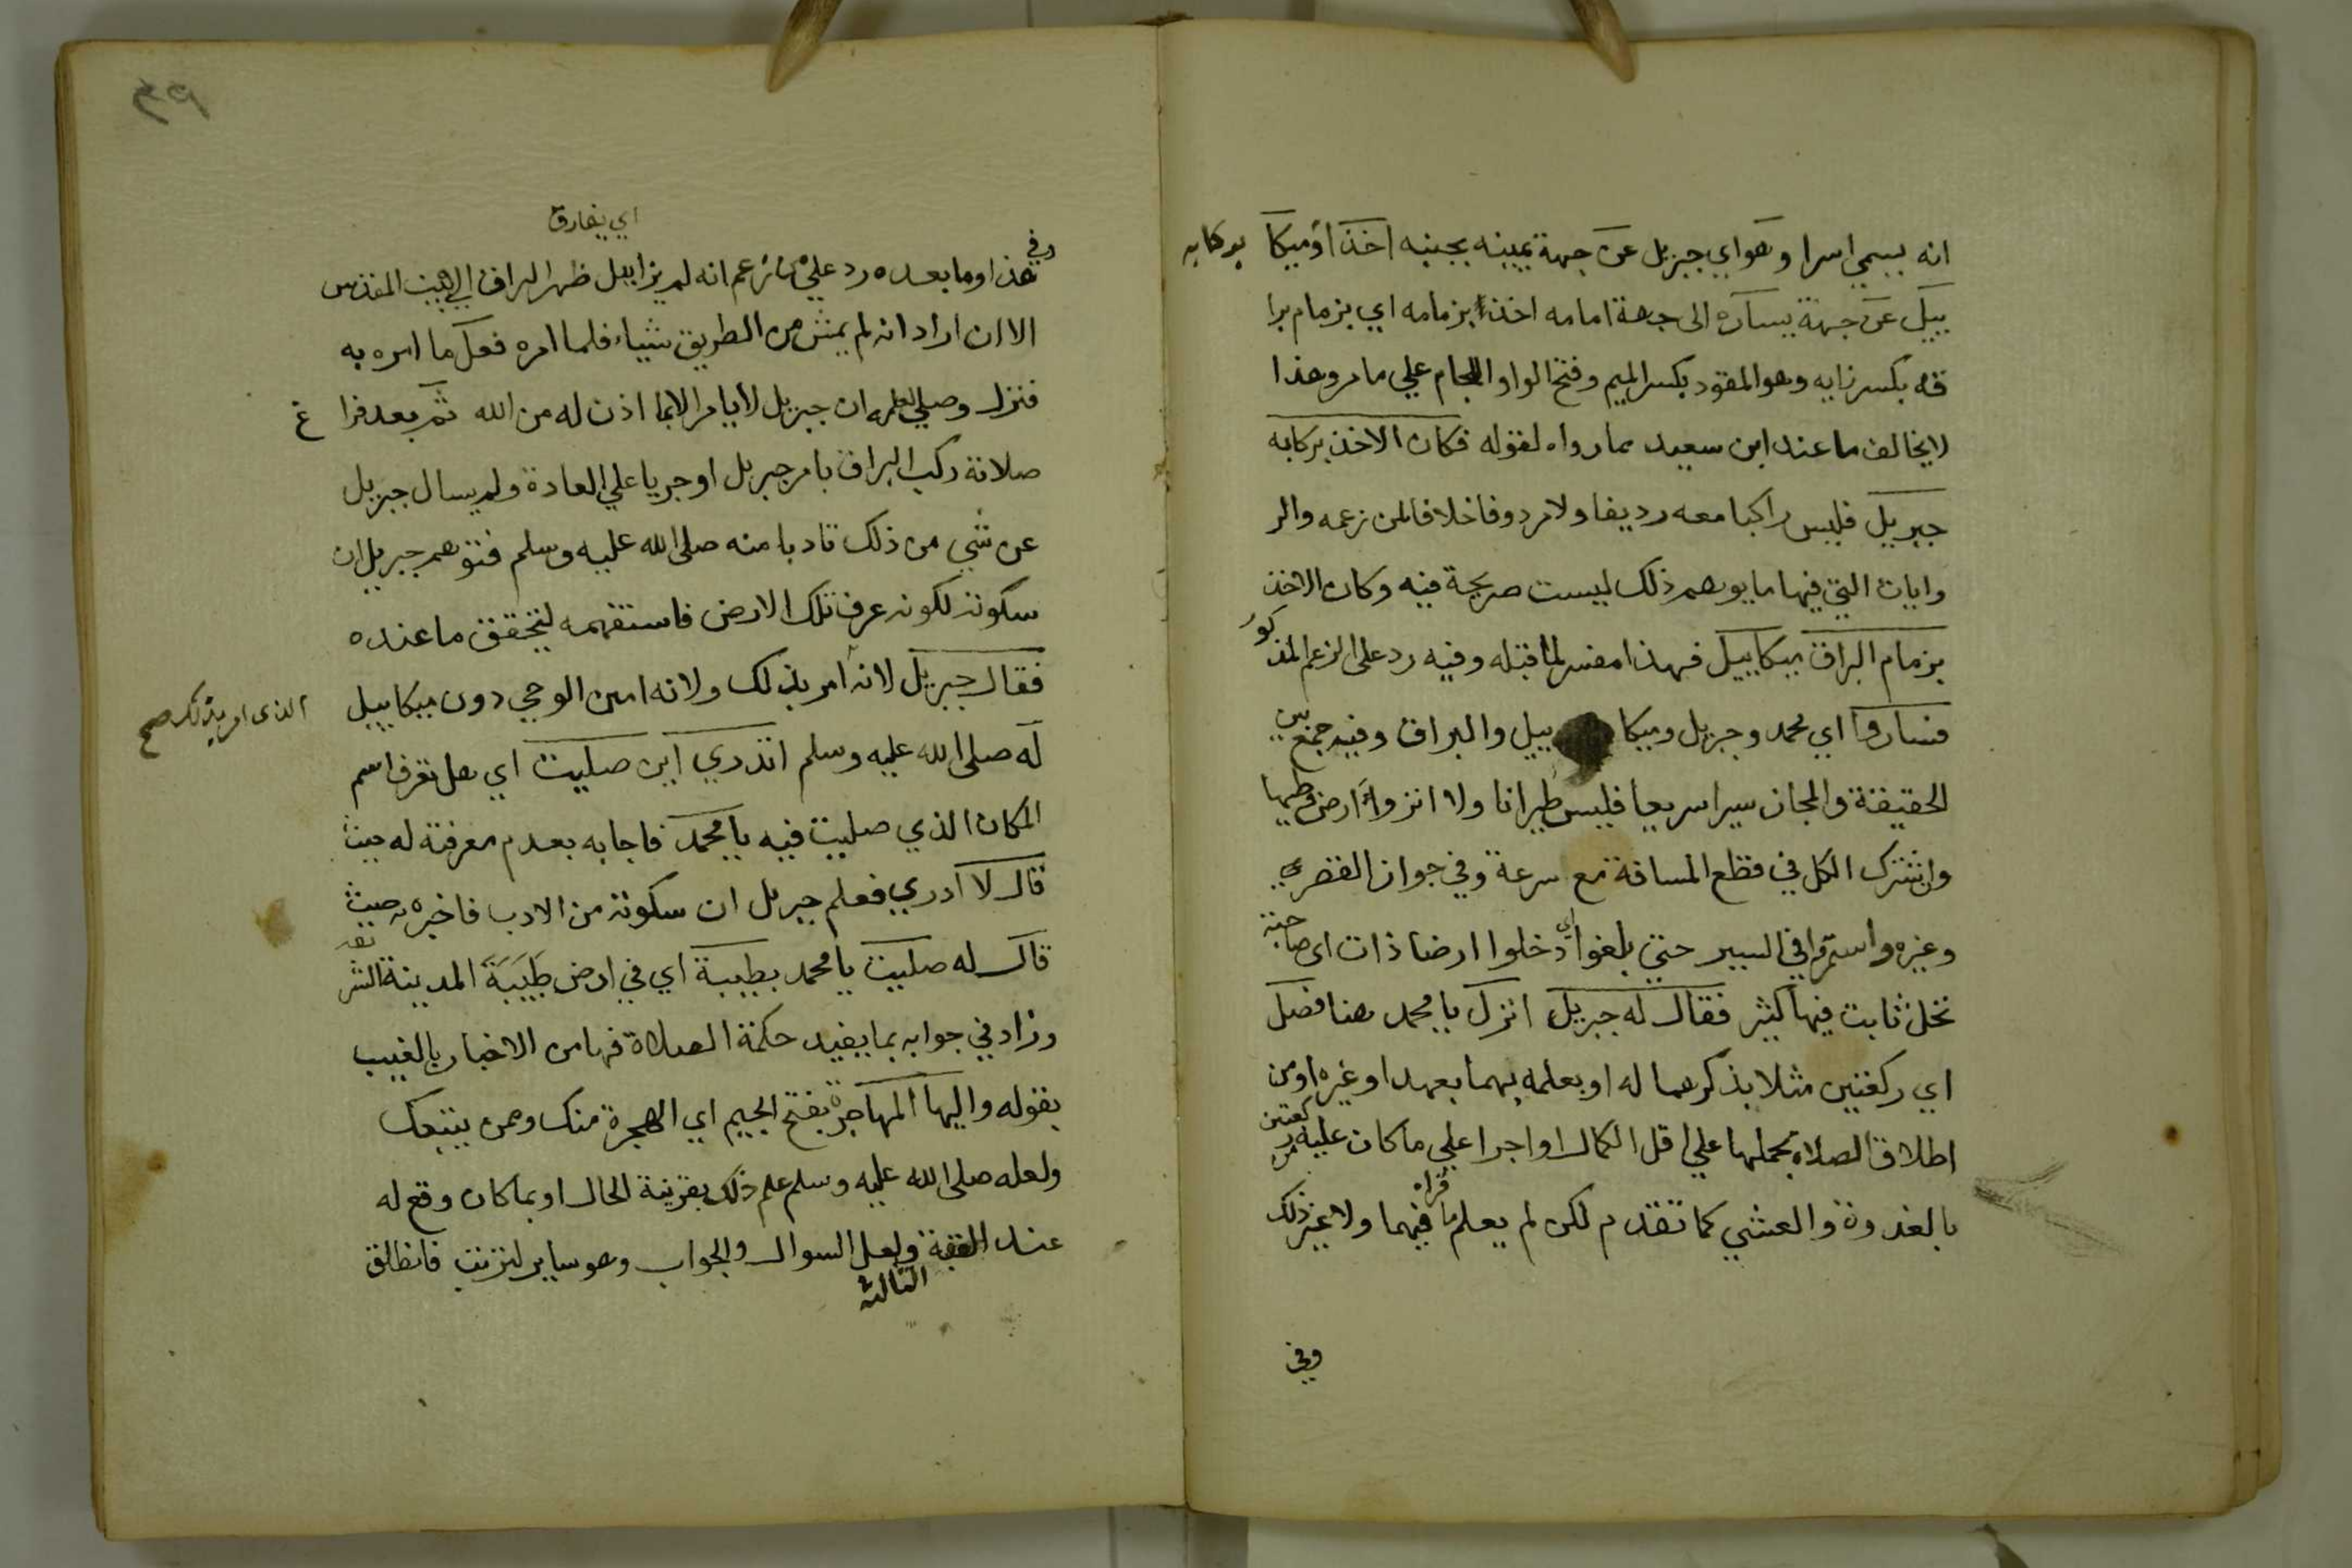 انه يسمي اسرا وهو اي جبريل عن جهة يمينه بجنبه اخذا وميكا بركابه
ييل عن جهة يساره الى جهة امامه اخذا بزمامه اي بزمام برا
قه بكسر زايه وهو المقود بكسر الميم وفتح الواو اللجام علي ما مر وهذا
لا يخالف ما عند ابن سعيد مما رواه لقوله فكان الاخذ بركابه
جبريل فليس راكبا معه رديفا ولا مردوفا خلافا لمن زعمه والر
وايات التي فيها ما يوهم ذلك ليست صريحة فيه وكان الاخذ
بزمام البراق ميكاييل فهذا مفسر لما قبله وفيه رد على الزعم المذكور
فساروا اي محمد وجبريل وميكا ييل والبراق وفيه جمع بين
الحقيقة والمجاز سيرا سريعا فليس طيرانا ولا انزواء ارض وطيها
وان اشترك الكل في قطع المسافة مع سرعة وفي جواز القصر
وغيره واستمروا في السير حتى بلغوا اي دخلوا ارضا ذات اى صاحبة
نخل ثابت فيها كثير فقال له جبريل انزل يا محمد هنا فصل
اي ركعتين مثلا بذكرهما له او بعلمه بهما بعهد او غيره او من
اطلاق الصلاة بحملها علي اقل الكمال او اجرا علي ما كان عليه من ركعتين
بالغدوة والعشي كما تقدم لكن لم يعلم ما قراه فيهما ولا غير ذلك
وفي
٣٩
اي يفارق
وفي هذا وما بعده رد علي من زعم انه لم يزايل ظهر البراق الي البيت المقدس
الا ان اراد انه لم يمش من الطريق شيا فلما امره فعل ما امره به
فنزل وصلي لعلمه ان جبريل لا يامر الا بما اذن له من الله ثم بعد فرا غ
صلاته ركب البراق بامر جبريل او جريا علي العادة ولم يسال جبريل
عن شي من ذلك تادبا منه صلى الله عليه وسلم فتوهم جبريل ان
سكوته لكونه عرف تلك الارض فاستفهمه ليتحقق ما عنده
فقال جبريل لانه امر بذلك ولانه امين الوحي دون ميكاييل
الذى امر بذلك صح
له صلى الله عليه وسلم اتدري اين صليت اي هل تعرف اسم
المكان الذي صليت فيه يا محمد فاجابه بعدم معرفته له حيث
قال لا ادري فعلم جبريل ان سكوته من الادب فاخبره به حيث
قال له صليت يا محمد بطيبة اي في ارض طيبة المدينة الشريفة
وزاد في جوابه بما يفيد حكمة الصلاة فيها من الاخبار بالغيب
بقوله واليها المهاجرة بفتح الجيم اي الهجرة منك وممن يتبعك
ولعله صلى الله عليه وسلم علم ذلك بقرينة الحال او بما كان وقع له
عند العقبة الثالثة ولعل السوال والجواب وهو ساير لترتب فانطلق